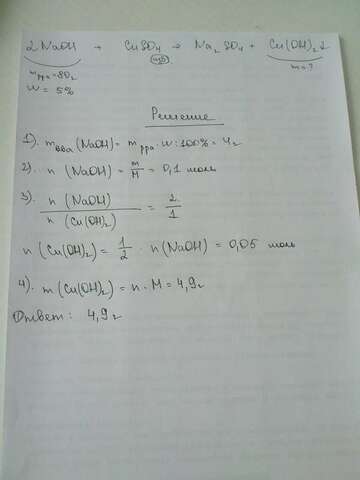 2NaOH + CuSO₄ → Na₂SO₄ + Cu(OH)₂↓
изб
m р-ра = 80г m = ?
w = 5%
Решение
1). m в-ва (NaOH) = m р-ра · w : 100% = 4г
2). n (NaOH) = m/M = 0,1 моль
3). n (NaOH) / n (Cu(OH)₂) = 2/1
n (Cu(OH)₂) = 1/2 · n (NaOH) = 0,05 моль
4). m (Cu(OH)₂) = n · M = 4,9г
Ответ: 4,9г